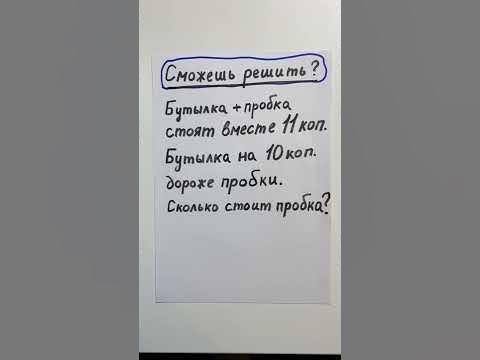 Сможешь решить?
Бутылка + пробка
стоят вместе 11 коп.
Бутылка на 10 коп.
дороже пробки.
Сколько стоит пробка?